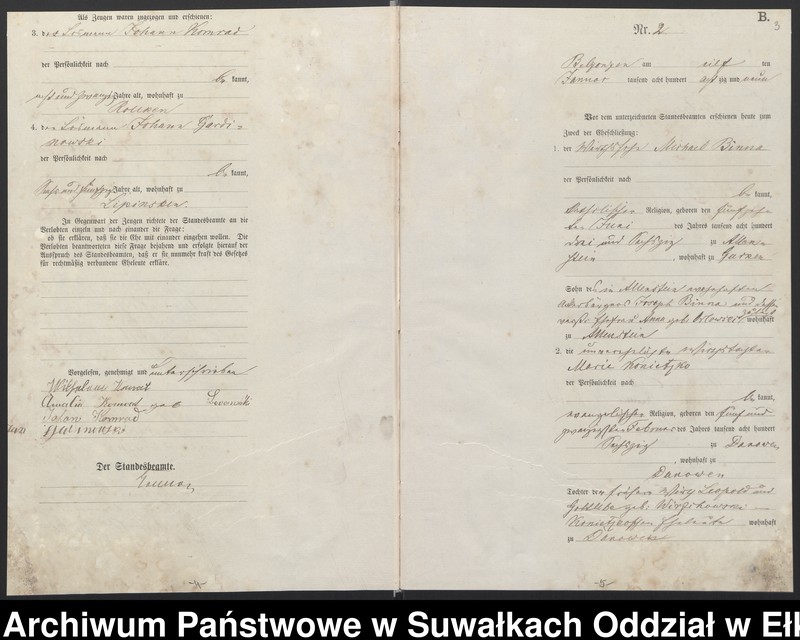 Als Zeugen waren zugezogen und erschienen:
3. der Losmann Johann Komrad
der Persönlichkeit nach
be kannt,
acht und zwanzig Jahre alt, wohnhaft zu
Rollken
4. der Losmann Johann
der Persönlichkeit nach
be kannt,
Jahre alt, wohnhaft zu
Lipinsken.
In Gegenwart der Zeugen richtete der Standesbeamte an die
Verlobten einzeln und nach einander die Frage:
ob sie erklären, daß sie die Ehe mit einander eingehen wollen. Die
Verlobten beantworteten diese Frage bejahend und erfolgte hierauf der
Ausspruch des Standesbeamten, daß er sie nunmehr kraft des Gesetzes
für rechtmäßig verbundene Eheleute erkläre.
Vorgelesen, genehmigt und unterschrieben
Wilhelm Komrad
Amalie Komrad geb
Johann Komrad
Der Standesbeamte.
-4-
B.
3
Nr. 2
am eilf ten
Januar tausend acht hundert acht zig und neun
Vor dem unterzeichneten Standesbeamten erschienen heute zum
Zweck der Eheschließung:
1. der Wirthssohn Michael Binna
der Persönlichkeit nach
be kannt,
katholischer Religion, geboren den fünfzehn
ten Juni des Jahres tausend acht hundert
drei und sechszig zu Allen-
stein, wohnhaft zu Gursen
Sohn des in Allenstein
Ackerbürgers Joseph Binna und dessen
Ehefrau Anna geb. Orlowski wohnhaft
zu Allenstein
2. die unverehelichte Wirthstochter
Marie Konietzko
der Persönlichkeit nach
be kannt,
evangelischer Religion, geboren den fünf und
zwanzigsten Februar des Jahres tausend acht hundert
sechszig zu Danowen
, wohnhaft zu
Danowen
Tochter der früher Wirth Leopold und
Gottliebe geb.
Konietzkoschen Eheleute wohnhaft
zu Danowen
-5-
Archiwum Państwowe w Suwałkach Oddział w Eł